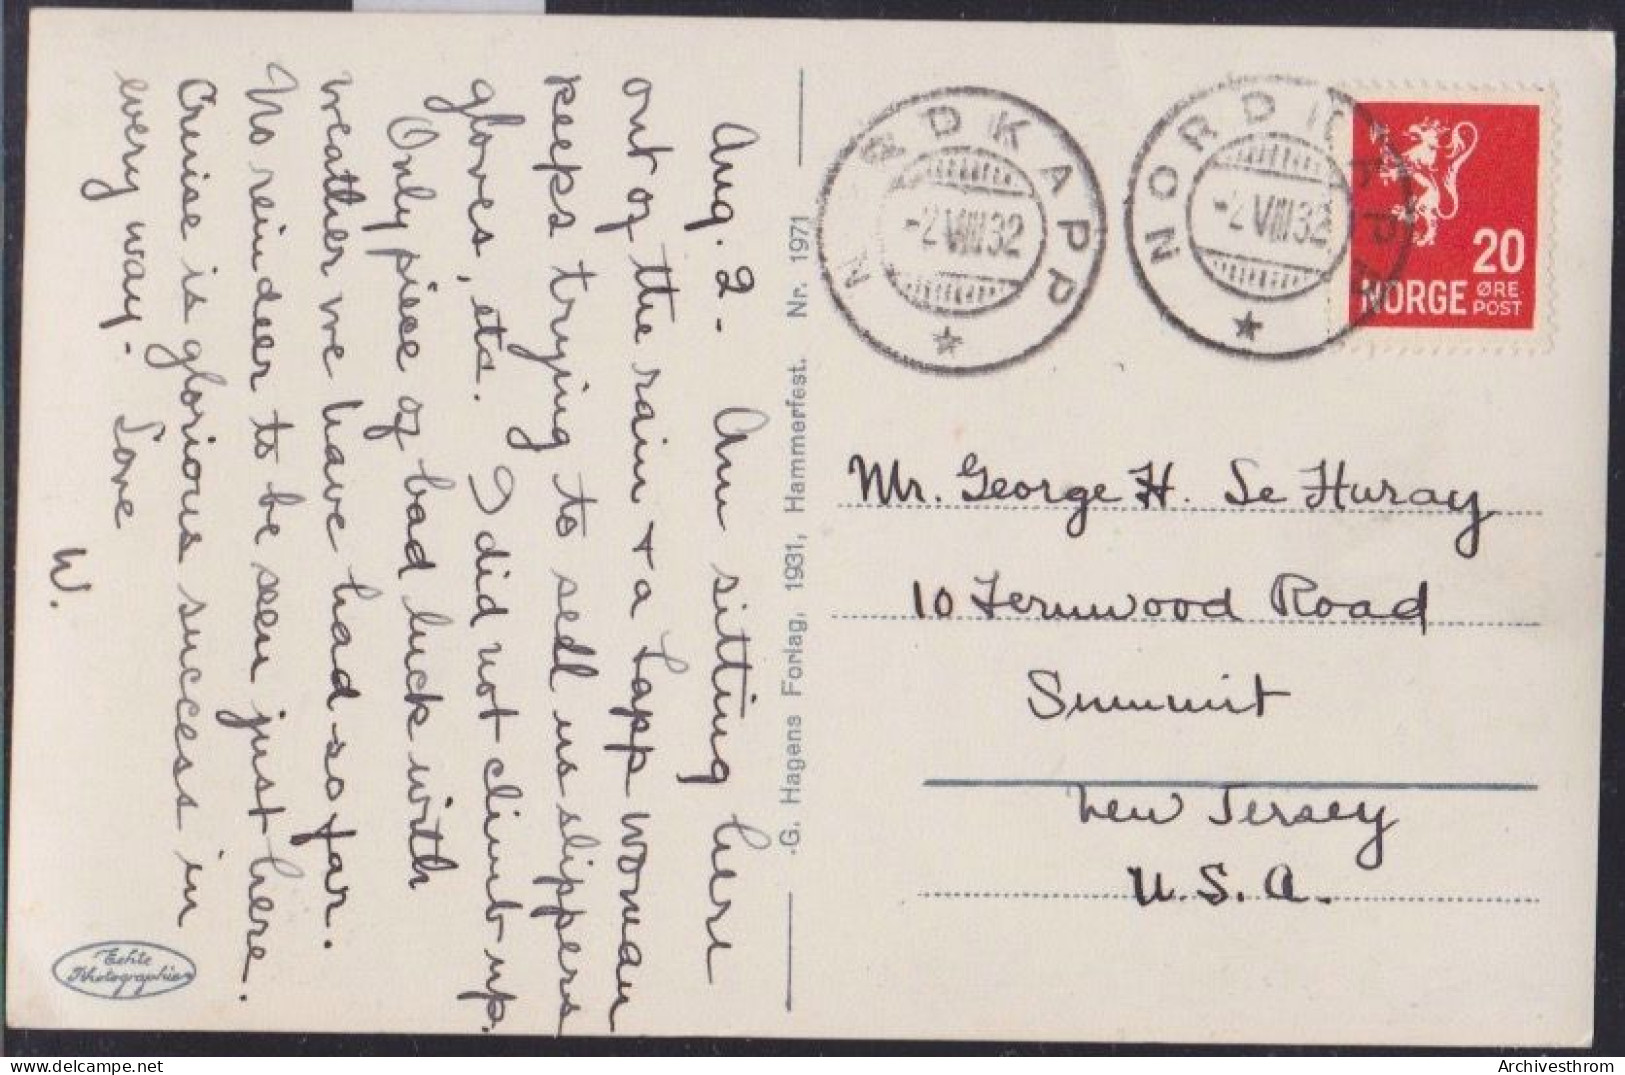 Aug. 2. Am sitting here
out of the rain & a Lapp woman
keeps trying to sell us slippers
gloves, etc. I did not climb up.
Only piece of bad luck with
weather we have had so far.
No reindeer to be seen just here.
Cruise is glorious success in
every way. Love
W.
Echte
Photographie
G. Hagens Forlag, 1931, Hammerfest. Nr. 1971
NORDKAPP
-2 VIII 32
NORDKAPP
-2 VIII 32
20
NORGE ØRE
POST
Mr. George H. Le Huray
10 Fernwood Road
Summit
New Jersey
U.S.A.
www.delcampe.net
Archivesthrom